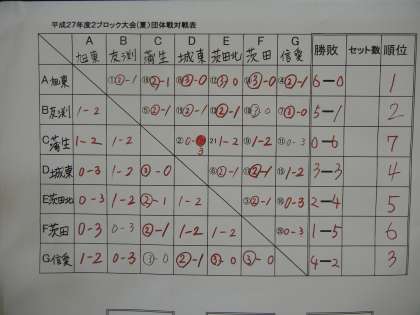 平成27年度2ブロック大会(夏)団体戦対戦表
A B C D E F G
旭東 友渕 蒲生 城東 茨田北 茨田 信愛 勝敗 セット数 順位
A旭東 ②-1 ②-1 ③-0 ③-0 ③-0 ②-1 6-0 1
B友渕 1-2 ②-1 ②-1 ②-1 ③-0 ③-0 5-1 2
C蒲生 1-2 1-2 0-3 1-2 1-2 0-3 0-6 7
D城東 0-3 1-2 ③-0 ②-1 ②-1 1-2 3-3 4
E茨田北 0-3 1-2 ②-1 1-2 ②-1 0-3 2-4 5
F茨田 0-3 0-3 ②-1 1-2 1-2 0-3 1-5 6
G信愛 1-2 0-3 ③-0 ②-1 ③-0 ③-0 4-2 3